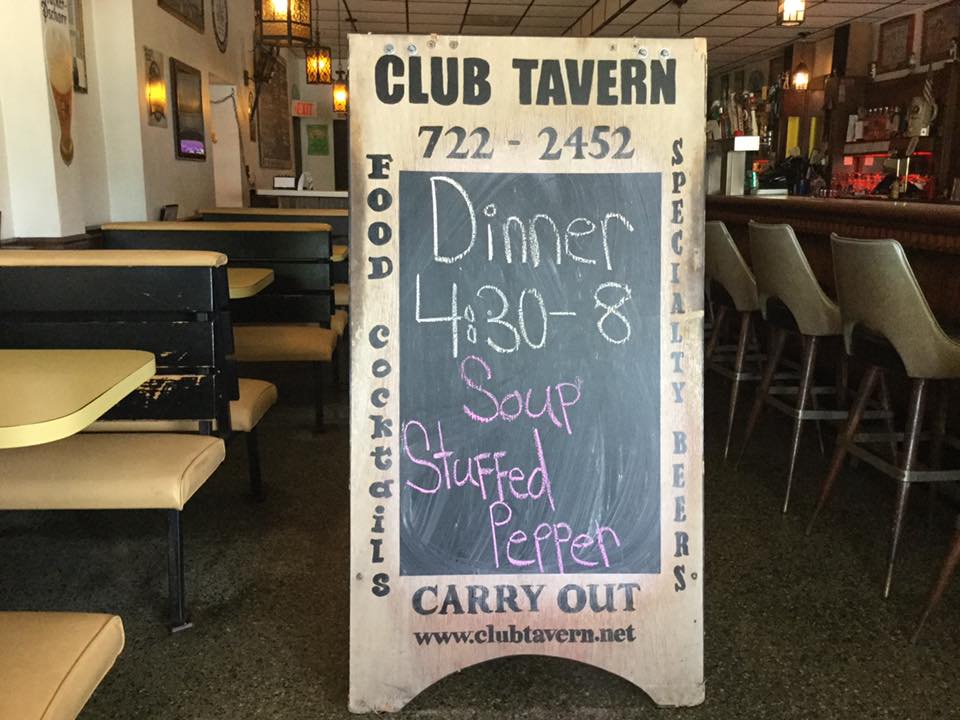 CLUB TAVERN
722-2452
FOOD COCKTAILS
Dinner
4:30-8
Soup
Stuffed
Pepper
SPECIALTY BEERS
CARRY OUT
www.clubtavern.net
EXIT